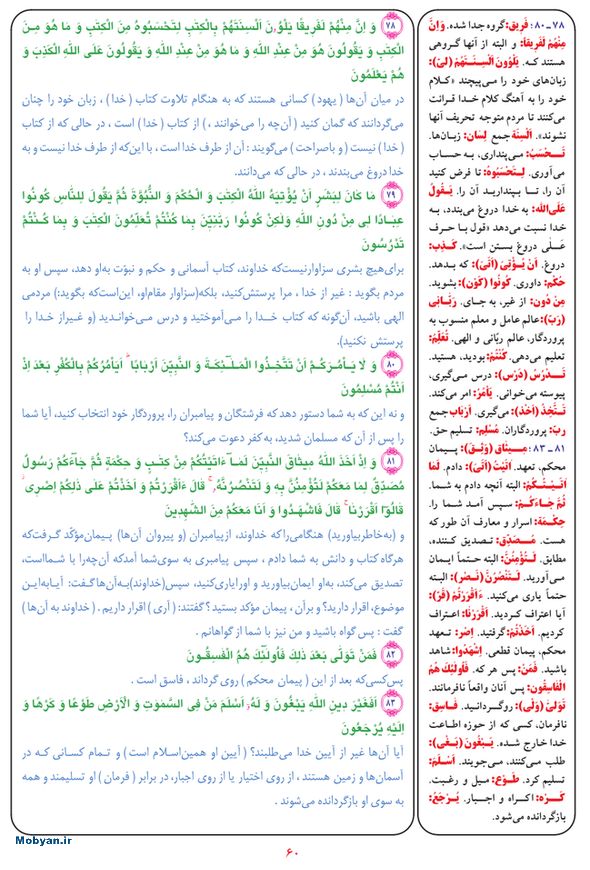 ۷۸ـ۸۰؛ فَریق: گروه جدا شده. وَ اِنَّ
مِنْهُمْ لَفَریقًا: و البته از آنها گروهی
هستند که. یَلْوُونَ اَلْسِنَتَهُمْ (لیّ):
زبان‌های خود را می‌پیچند «کلام
خود را به آهنگ کلام خدا قرائت
می‌کنند تا مردم متوجه تحریف آنها
نشوند». اَلْسِنَة جمع لِسان: زبان‌ها.
تَحْسَبُ: می‌پنداری، به حساب
می‌آوری. لِتَحْسَبُوهُ: تا فرض کنید
آن را، تا بپندارید آن را. یَقُولُ
عَلَی‌الله: به خدا دروغ می‌بندد، به
خدا نسبت می‌دهد «قول با حرف
عَلی دروغ بستن است». کَذِب:
دروغ. اَنْ یُؤْتِیَ (اَتْی): که بدهد.
حُکْم: داوری. کُونُوا (کَوْن): بشوید.
مِنْ دُون: از غیر، به جای. رَبّانی
(رَبّ): عالم عامل و معلم منسوب به
پروردگار، عالم ربّانی و الهی. تُعَلِّمُ:
تعلیم می‌دهی. کُنْتُمْ: بودید، هستید.
تَدْرُسُ (دَرْس): درس می‌گیری،
پیوسته می‌خوانی. یَأمُرُ: امر می‌کند.
تَتَّخِذُ (اَخْذ): می‌گیری. اَرْباب جمع
ربّ: پروردگاران. مُسْلِم: تسلیم حق.
۸۱ ـ ۸۳؛ میثاق (وَثِقَ): پیمان
محکم، تعهد. آتَیْتُ (اَتْی): دادم. لَما
آتَیْتُکُمْ: البته آنچه دادم به شما.
ثُمَّ جاءَکُمْ: سپس آمد شما را.
حِکْمَة: اسرار و معارف آن طور که
هست. مُصَدِّق: تصدیق کننده،
مطابق. لَتُؤْمِنُنَّ: البته حتماً ایمان
می‌آورید. لَتَنْصُرُنَّ (نَصْر): البته
حتماً یاری می‌کنید. ءَاَقْرَرْتُمْ (قَرّ):
آیا اعتراف کردید. اَقْرَرْنا: اعتراف
کردیم. اَخَذْتُمْ: گرفتید. اِصْر: تعهد
محکم، پیمان قطعی. اِشْهَدُوا: شاهد
باشید. فَمَنْ: پس هر که. فَاُولئِکَ هُمُ
الْفاسِقُون: پس آنان واقعاً نافرمانند.
تَوَلّیٰ (وَلْی): روگردانید. فاسِق:
نافرمان، کسی که از حوزه اطاعت
خدا خارج شده. یَبْغُونَ (بَغْی):
طلب می‌کنند، می‌جویند. اَسْلَمَ:
تسلیم کرد. طَوْع: میل و رغبت.
کَرْه: اکراه و اجبار. یُرْجَعُ:
بازگردانده می‌شود.
۷۸ وَ اِنَّ مِنْهُمْ لَفَریقًا یَلْوُ۫نَ اَلْسِنَتَهُمْ بِالْکِتٰبِ لِتَحْسَبُوهُ مِنَ الْکِتٰبِ وَ مَا هُوَ مِنَ
الْکِتٰبِ وَ یَقُولُونَ هُوَ مِنْ عِنْدِ اللهِ وَ مَا هُوَ مِنْ عِنْدِ اللهِ وَ یَقُولُونَ عَلَی اللهِ الْکَذِبَ وَ
هُمْ یَعْلَمُونَ
در میان آن‌ها ( یهود) کسانی هستند که به هنگام تلاوت کتاب ( خدا ) ، زبان خود را چنان
می‌گردانند که گمان کنید ( آن‌چه را می‌خوانند ، ) از کتاب ( خدا ) است ، در حالی که از کتاب
( خدا ) نیست ( و باصراحت ) می‌گویند : آن از طرف خدا است ، با این‌که از طرف خدا نیست و به
خدا دروغ می‌بندند ، در حالی که می‌دانند.
۷۹ مَا کَانَ لِبَشَرٍ اَنْ یُؤْتِیَهُ اللهُ الْکِتٰبَ وَ الْحُکْمَ وَ النُّبُوَّةَ ثُمَّ یَقُولَ لِلنَّاسِ کُونُوا
عِبَادًا لِی مِنْ دُونِ اللهِ وَلٰکِنْ کُونُوا رَبّٰنِیّ۪نَ بِمَا کُنْتُمْ تُعَلِّمُونَ الْکِتٰبَ وَ بِمَا کُنْتُمْ
تَدْرُسُونَ
برای‌هیچ بشری سزاوارنیست‌که خداوند، کتاب آسمانی و حکم و نبوّت به‌او دهد، سپس او به
مردم بگوید : غیر از خدا ، مرا پرستش‌کنید، بلکه(سزاوار مقام‌او، این‌است‌که بگوید:) مردمی
الهی باشید، آن‌گونه که کتاب خدا را می‌آموختید و درس می‌خواندید (و غیراز خدا را
پرستش نکنید).
۸۰ وَ لَا یَاْمُرَکُمْ اَنْ تَتَّخِذُوا الْمَلٰٓئِکَةَ وَ النَّبِیّ۪نَ اَرْبَابًا ؕ اَیَاْمُرُکُمْ بِالْکُفْرِ بَعْدَ اِذْ
اَنْتُمْ مُسْلِمُونَ
و نه این که به شما دستور دهد که فرشتگان و پیامبران را، پروردگار خود انتخاب کنید، آیا شما
را پس از آن که مسلمان شدید، به‌کفر دعوت می‌کند؟
۸۱ وَ اِذْ اَخَذَ اللهُ میثَاقَ النَّبِیّ۪نَ لَمَآ ءَاتَیْتُکُمْ مِنْ کِتٰبٍ وَ حِکْمَةٍ ثُمَّ جَآءَکُمْ رَسُولٌ
مُصَدِّقٌ لِمَا مَعَکُمْ لَتُؤْمِنُنَّ بِهِ وَ لَتَنْصُرُنَّهُ ۚ قَالَ ءَاَقْرَرْتُمْ وَ اَخَذْتُمْ عَلٰی ذٰلِکُمْ اِصْری ؕ
قَالُوٓا اَقْرَرْنَا ۚ قَالَ فَاشْهَدُوا وَ اَنَا مَعَکُمْ مِنَ الشّٰهِدینَ
و (به‌خاطربیاورید) هنگامی‌راکه خداوند، ازپیامبران (و پیروان آن‌ها) پیمان‌مؤکّد گرفت‌که
هرگاه کتاب و دانش به شما دادم ، سپس پیامبری به سوی‌شما آمدکه آن‌چه‌را با شمااست،
تصدیق می‌کند، به‌او ایمان‌بیاورید و اورایاری‌کنید، سپس(خداوند)به‌آن‌هاگفت: آیابه‌این
موضوع، اقرار دارید؟ و برآن ، پیمان مؤکد بستید ؟ گفتند: ( آری ) اقرار داریم . ( خداوند به آن‌ها )
گفت : پس گواه باشید و من نیز با شما از گواهانم .
۸۲ فَمَنْ تَوَلّٰی بَعْدَ ذٰلِکَ فَاُولٰٓئِکَ هُمُ الْفٰسِقُونَ
پس‌کسی‌که بعد از این ( پیمان محکم ) روی گرداند ، فاسق است .
۸۳ اَفَغَیْرَ دینِ اللهِ یَبْغُونَ وَ لَهُٓ اَسْلَمَ مَنْ فِی السَّمٰوٰتِ وَ الْاَرْضِ طَوْعًا وَ کَرْهًا وَ
اِلَیْهِ یُرْجَعُونَ
آیا آن‌ها غیر از آیین خدا می‌طلبند؟ ( آیین او همین‌اسلام است ) و تمام کسانی کـه در
آسمان‌ها و زمین هستند ، از روی اختیار یا از روی اجبار، در برابر ( فرمان ) او تسلیمند و همه
به سوی او بازگردانده می‌شوند .
Mobyan.ir
۶۰